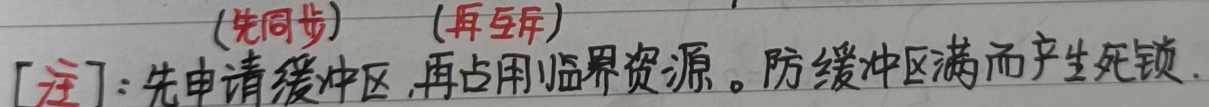 (先同步) (再互斥)
[注]:先申请缓冲区,再占用临界资源。防缓冲区满而产生死锁.